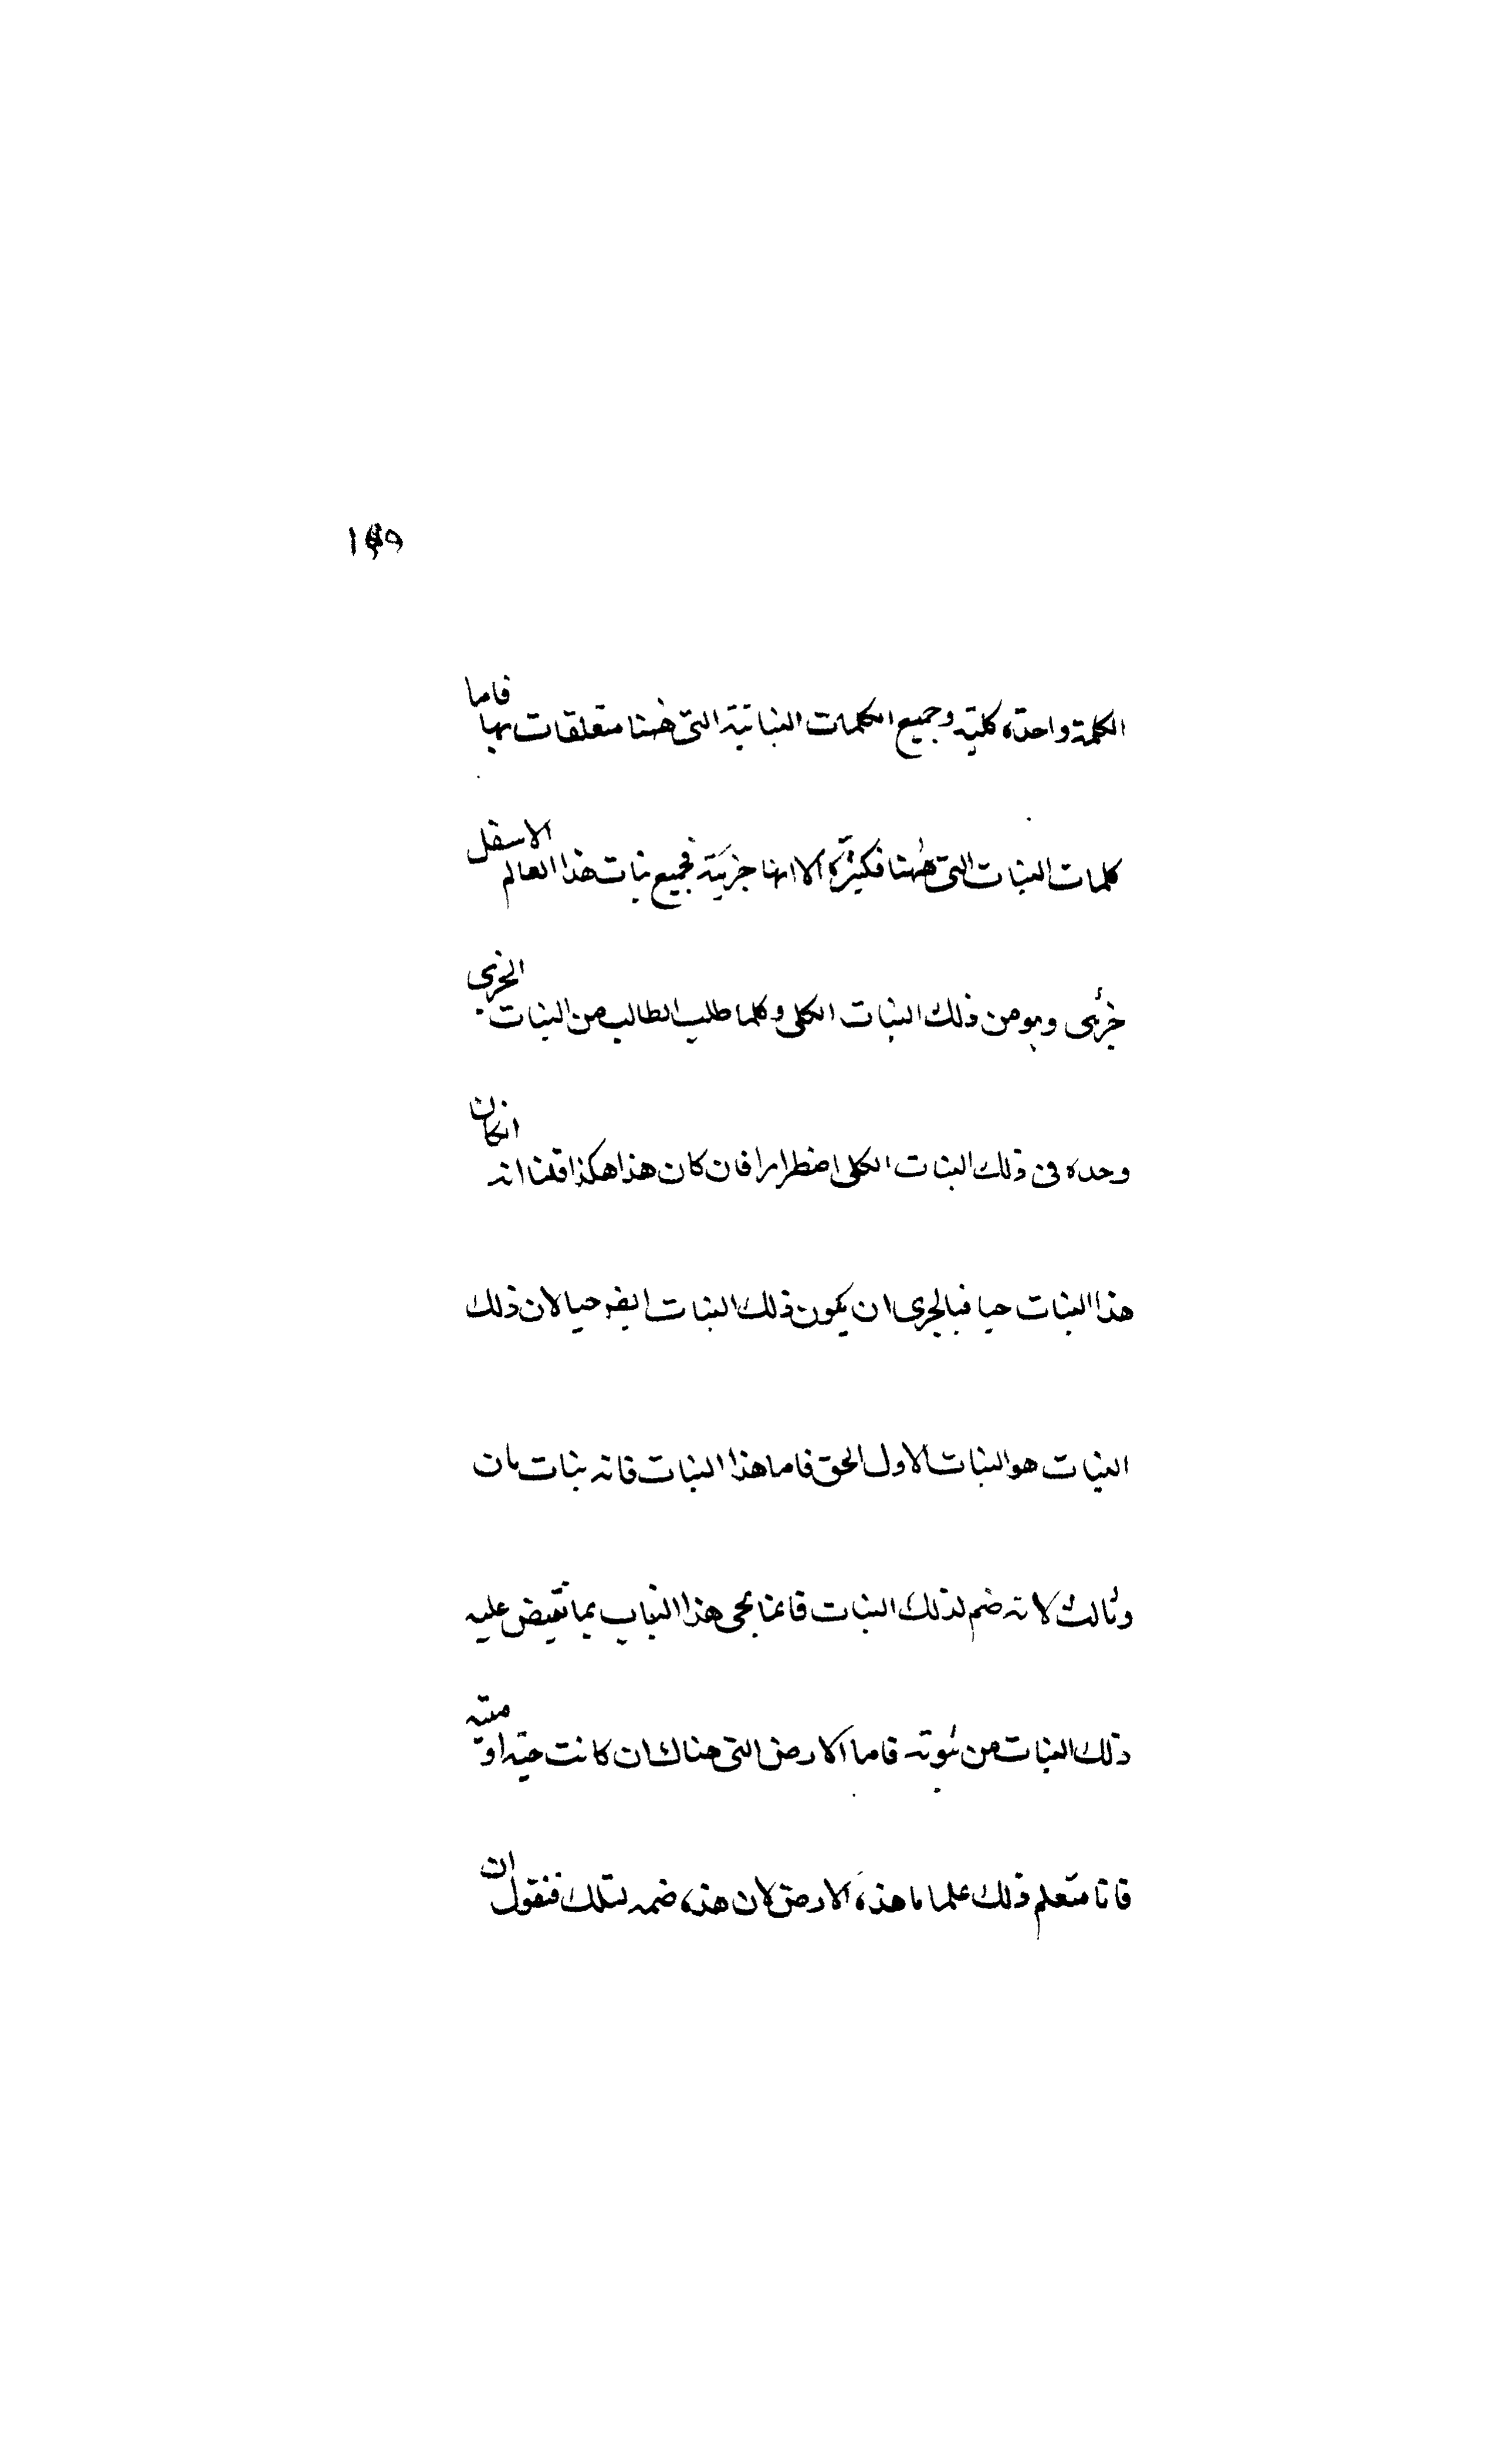 الكلمة واحدة كلية وجميع الكلمات النباتية التى ههنا متعلقات بها فاما
كلمات النبات التى ههنا فكثيرة الا انها جزئية فجميع نبات هذا العالم الاسفل
جزئى وهو من ذلك النبات الكلى وكلما طلب الطالب من النبات الجزئى
وحده فى ذلك النبات الكلى اضطرارا فان كان هذا هكذا قلنا انه انكان
هذا النبات حيا فبالحرى ان يكون ذلك النبات ايضه حيا لان ذلك
النبات هو النبات الاول الحق فاما هذا النبات فانه نبات ثان
وثالث لانه صنم لذلك النبات فانما يحى هذا النبات بما تفيض عليه
ذلك النبات من فاما الارض التى هناك ان كانت حية او ميته
فانا ذلك علما ما هذه الارض لان هذه صنم لتلك فنقول ان